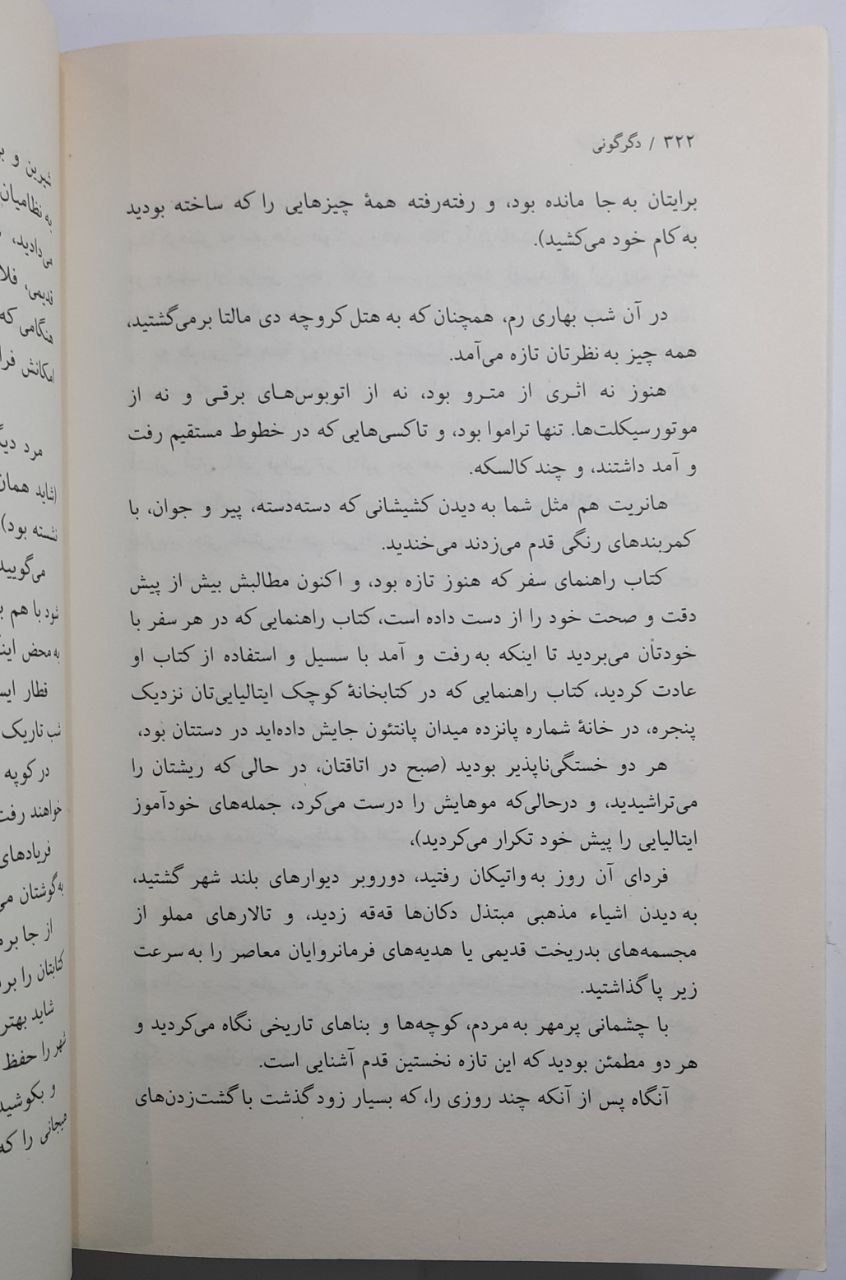 ۳۲۲ / دگرگونی
برایتان به جا مانده بود، و رفته‌رفته همهٔ چیزهایی را که ساخته بودید
به کام خود می‌کشید).
در آن شب بهاری رم، همچنان که به هتل کروچه دی مالتا برمی‌گشتید،
همه چیز به نظرتان تازه می‌آمد.
هنوز نه اثری از مترو بود، نه از اتوبوس‌های برقی و نه از
موتورسیکلت‌ها. تنها تراموا بود، و تاکسی‌هایی که در خطوط مستقیم رفت
و آمد داشتند، و چند کالسکه.
هانریت هم مثل شما به دیدن کشیشانی که دسته‌دسته، پیر و جوان، با
کمربندهای رنگی قدم می‌زدند می‌خندید.
کتاب راهنمای سفر که هنوز تازه بود، و اکنون مطالبش بیش از پیش
دقت و صحت خود را از دست داده است، کتاب راهنمایی که در هر سفر با
خودتان می‌بردید تا اینکه به رفت و آمد با سسیل و استفاده از کتاب او
عادت کردید، کتاب راهنمایی که در کتابخانهٔ کوچک ایتالیایی‌تان نزدیک
پنجره، در خانهٔ شماره پانزده میدان پانتئون جایش داده‌اید در دستتان بود،
هر دو خستگی‌ناپذیر بودید (صبح در اتاقتان، در حالی که ریشتان را
می‌تراشیدید، و درحالی‌که موهایش را درست می‌کرد، جمله‌های خودآموز
ایتالیایی را پیش خود تکرار می‌کردید)،
فردای آن روز به واتیکان رفتید، دوروبر دیوارهای بلند شهر گشتید،
به دیدن اشیاء مذهبی مبتذل دکان‌ها قه‌قه زدید، و تالارهای مملو از
مجسمه‌های بدریخت قدیمی یا هدیه‌های فرمانروایان معاصر را به سرعت
زیر پا گذاشتید.
با چشمانی پرمهر به مردم، کوچه‌ها و بناهای تاریخی نگاه می‌کردید و
هر دو مطمئن بودید که این تازه نخستین قدم آشنایی است.
آنگاه پس از آنکه چند روزی را، که بسیار زود گذشت با گشت‌زدن‌های
شیرین و
به نظامیان
می‌دادید،
قدیمی، فلا
هنگامی که
امکانش فرا
مرد دیگ
(شاید همان
نشسته بود)
می‌گویید
شود با هم
به محض اینک
قطار ایس
شب تاریک
در کوپه
خواهند رفت
فریادهای
به‌گوشتان می
از جا برم
کتابتان را برد
شاید بهتر
شهر را حفظ
و بکوشید
هیجانی را که